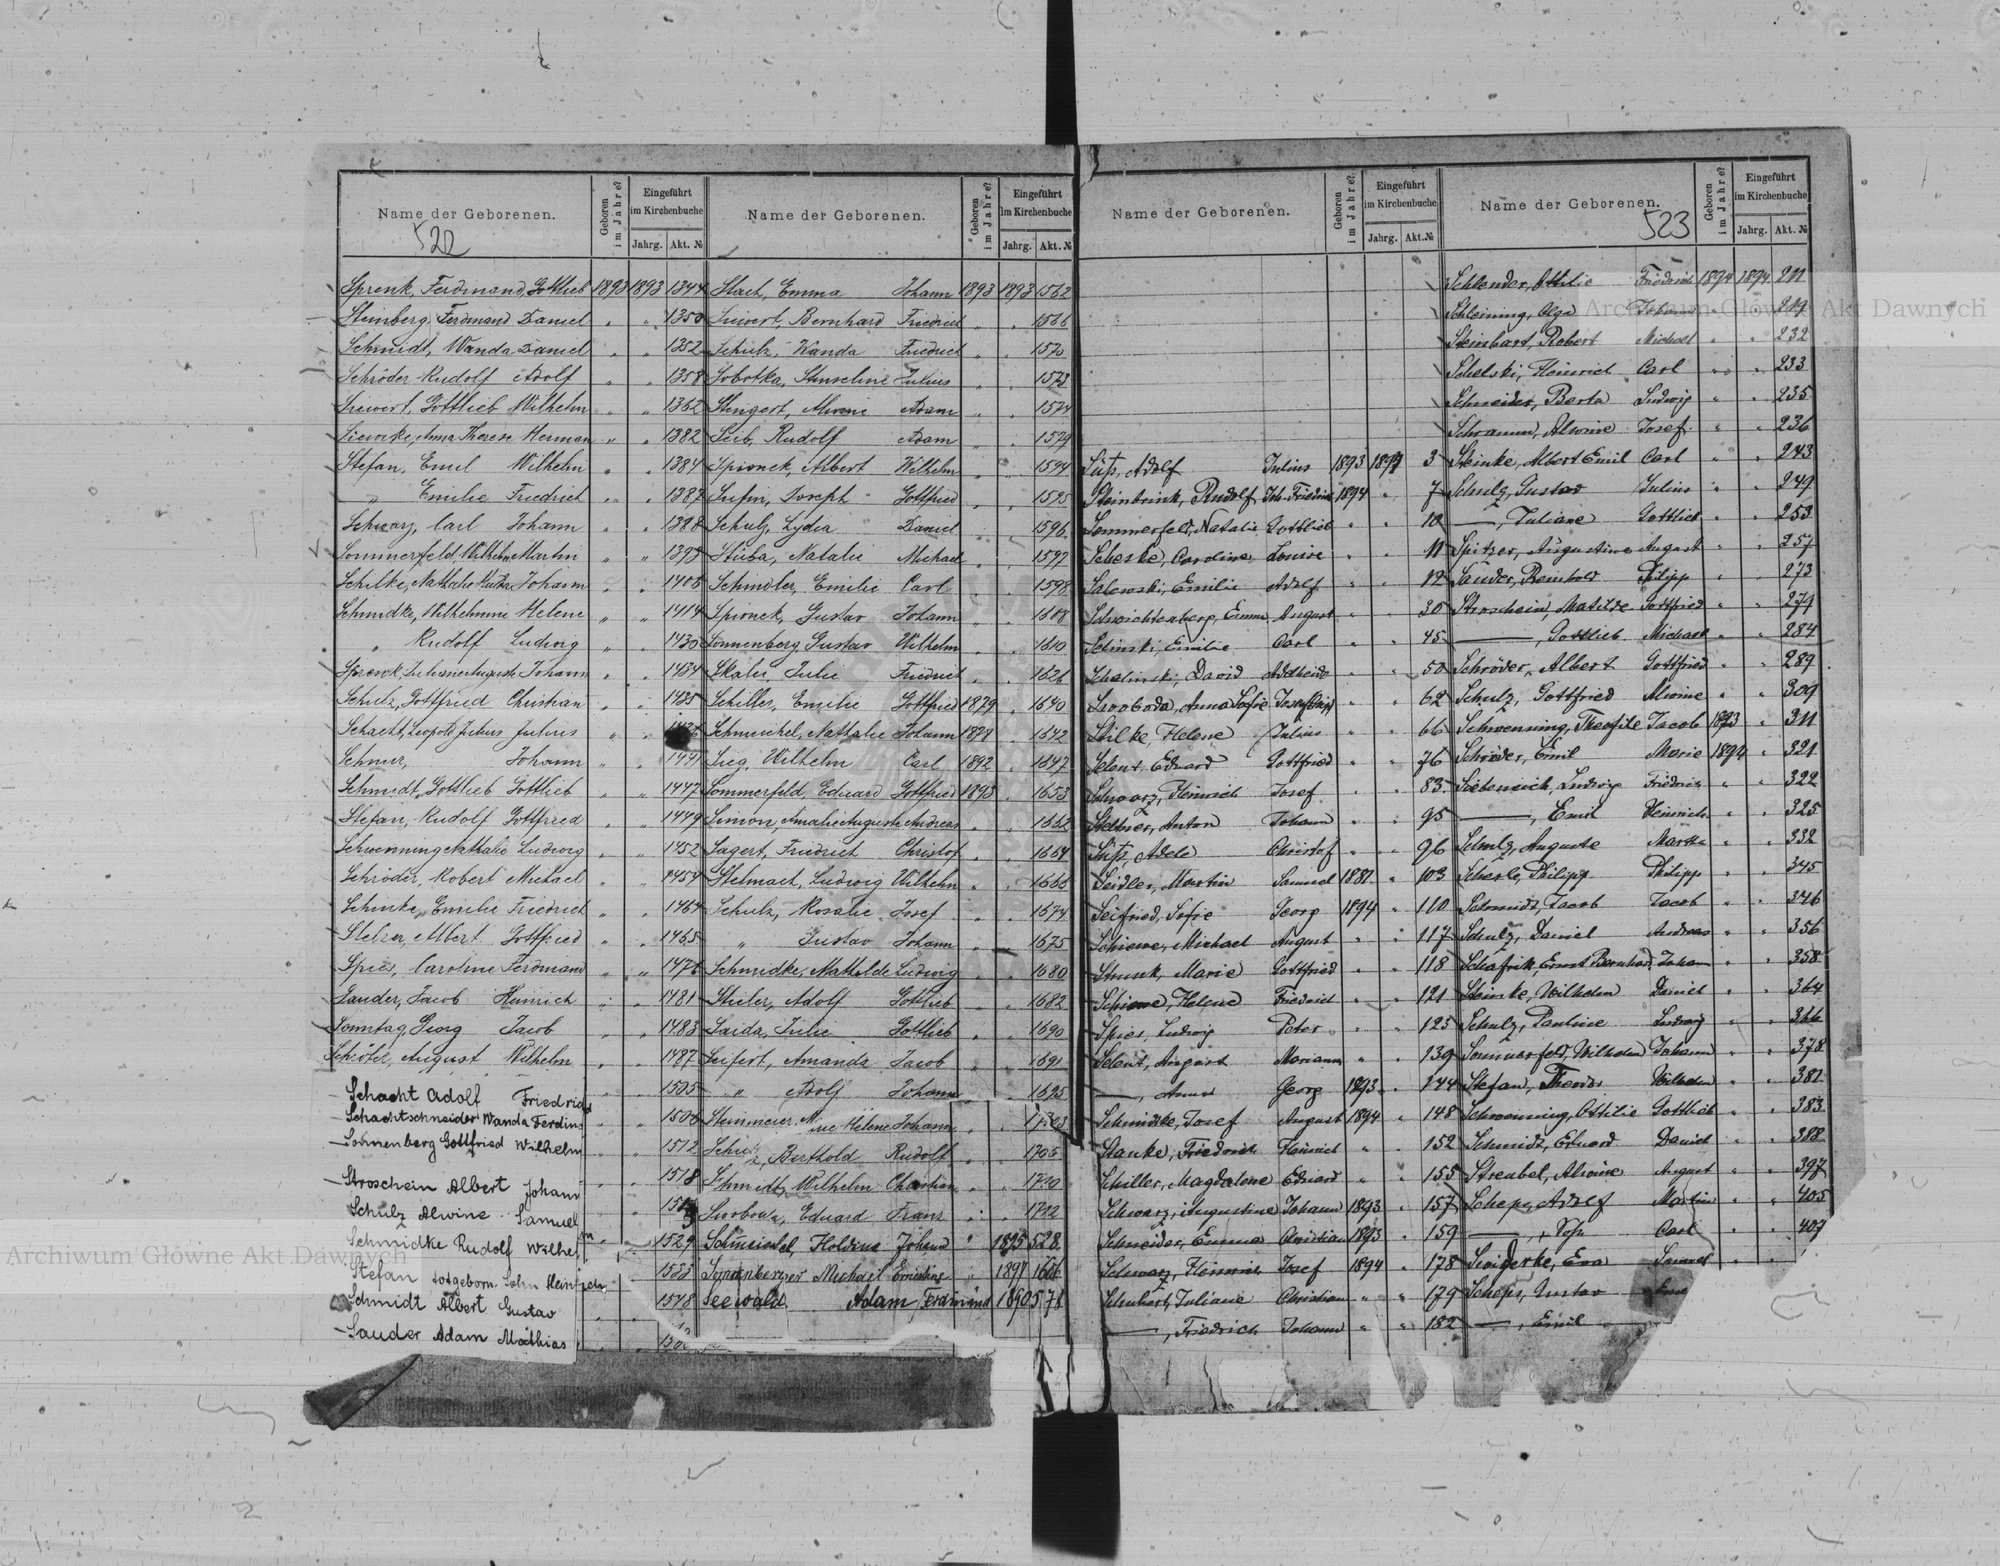 Name der Geborenen.
Geboren im Jahre?
Eingeführt im Kirchenbuche
Jahrg. Akt. №
522
Sprenk, Ferdinand, Gottlieb 1893 1893 1344
Steinberg, Ferdinand Daniel " " 1350
Schmidt, Wanda Daniel " " 1352
Schröder Rudolf Adolf " " 1358
Siewert, Gottlieb Wilhelm " " 1362
Anna Therese Herman " " 1382
Stefan, Emil Wilhelm " " 1384
" Emilie Friedrich " " 1387
Schwarz, Carl Johann " " 1388
Sommerfeld, Wilhelm Martin " "
Schilke, Nathalie Johann " "
Schmidke, Wilhelmine Helene " " 1414
" Rudolf Ludwig " " 1430
Juliane Auguste Johann " " 1434
Schulz, Gottfried Christian " " 1435
Schacht, Leopold Julius Julius " "
Johann " "
Schmidt, Gottlieb Gottlieb " " 1447
Stefan, Rudolf Gottfried " " 1449
Schwenning Nathalie Ludwig " " 1452
Schröder, Robert Michael " " 1454
Schinke, Emilie Friedrich " " 1464
Stelzer, Albert Gottfried " " 1465
Spies, Caroline Ferdinand " " 1476
Sauder, Jacob Heinrich " " 1481
Sonntag, Georg Jacob " " 1483
August Wilhelm " " 1487
Schacht Adolf Friedrich " " 1505
Schachtschneider Wanda Ferdin " "
Sonnenberg Gottfried Wilhelm " " 1512
Stroschein Albert Johann " " 1518
Schulz Alwine Samuel " "
Schmidke Rudolf Wilhelm " " 1529
Stefan todgeborn. Sohn Heinrich " " 1533
Schmidt Albert Gustav " " 1548
Sauder Adam Mathias
Name der Geborenen.
Geboren im Jahre?
Eingeführt im Kirchenbuche
Jahrg. Akt. №
Stach, Emma Johann 1893 1893 1562
Siewert, Bernhard Friedrich " " 1566
Schulz, Wanda Friedrich " " 1570
Sobotka, Julius " " 1573
Stengert, Alwine Adam " " 1574
Seib, Rudolf Adam " " 1579
Spionek, Albert Wilhelm " " 1594
Joseph Gottfried " " 1595
Schulz, Lydia Daniel " 1596
Stüba, Natalie Michael " " 1597
Schindler, Emilie Carl " " 1598
Spionek, Gustav Johann " " 1608
Sonnenberg Gustav Wilhelm " " 1610
Skalei, Julie Friedrich " " 1626
Schiller, Emilie Gottfried 1879 " 1640
Schmeichel, Nathalie Johann 1878 " 1642
Sieg, Wilhelm Carl 1892 " 1647
Sommerfeld, Eduard Gottfried 1893 " 1653
Simon, Amalie Auguste Andreas " " 1662
Sagert, Friedrich Christof " " 1664
Stelmach, Ludwig Wilhelm " " 1666
Schulz, Rosalie Josef " " 1674
" Gustav Johann " " 1675
Schmidke, Mathilde Ludwig " " 1680
Stieler, Adolf Gottlieb " " 1682
Saida, Julie Gottlieb " " 1690
Seifert, Amanda Jacob " " 1691
" Adolf Johann " " 1695
Steinmeier Helene Johann " "
Schulz, Berthold Rudolf " "
Schmidt, Wilhelm Christian " "
Swoboda, Eduard Franz " " 1722
Schmeichel, Holdine Johann " 1895 528
Michael Ernestine " 1897
Seewald Adam Ferdinand 1890 578
Name der Geborenen.
Geboren im Jahre?
Eingeführt im Kirchenbuche
Jahrg. Akt. №
Süß, Adolf Julius 1893 1894 3
Steinbrink, Rudolf Joh. Friedrich 1894 " 7
Sommerfeld, Natalie Gottlieb " " 10
Scheske, Caroline Louise " " 11
Salewski, Emilie Adolf " " 12
Schwichtenberg, Emma August " " 30
Selinski, Emilie Carl " " 45
Schalinski, David Adelheid " " 50
Swoboda, Anna Sofie Josef " " 62
Stilke, Helene Julius " " 66
Selent, Eduard Gottfried " " 76
Schwarz, Heinrich Josef " " 83
Stelzner, Anton Johann " " 95
Süß, Adele Christof " " 96
Seidler, Martin Samuel 1881 " 103
Seifried, Sofie Georg 1894 " 110
Schiewe, Michael August " " 117
Strunk, Marie Gottfried " " 118
Schiewe, Helene Friedrich " " 121
Spies, Ludwig Peter " " 123
Selent, August Marianna " " 139
—, Anna Georg 1893 " 144
Schmidke, Josef August 1894 " 148
Stanke, Friedrich Heinrich " " 152
Schiller, Magdalene Eduard " " 155
Schwarz, Augustine Johann 1893 " 157
Schneider, Emma Christian 1893 " 159
Schwarz, Heinrich Josef 1894 " 178
Schubert, Juliane Christian " " 179
—, Friedrich Johann " " 182
Name der Geborenen.
Geboren im Jahre?
Eingeführt im Kirchenbuche
Jahrg. Akt. №
523
Schlender, Ottilie Friedrich 1894 1894 211
Schleining, Olga Johann " " 219
Steinbart, Robert Michael " " 232
Schelski, Heinrich Carl " " 233
Schneider, Berta Ludwig " " 235
Schramm, Alwine Josef " " 236
Steinke, Albert Emil Carl " " 243
Schulz, Gustav Julius " " 249
—, Juliane Gottlieb " " 253
Spitzer, Augustine August " " 257
Sauder, Reinhold Philipp " " 273
Stroschein, Matilde Gottfried " " 279
—, Gottlieb Michael " " 284
Schröder, Albert Gottfried " " 289
Schulz, Gottfried Alwine " " 309
Schwenning, Theofile Jacob 1893 " 311
Schröder, Emil Marie 1894 " 321
Siebeneich, Ludwig Friedrich " " 322
—, Emil Heinrich " " 325
Schulz, Auguste Martin " " 332
Scherle, Philipp Philipp " " 345
Schmidt, Jacob Jacob " " 346
Schulz, Daniel Andreas " " 356
Schafrik, Ernst Bernhard, Johann " " 358
Steinke, Wilhelm Daniel " " 364
Schulz, Pauline Ludwig " " 366
Sommerfeld, Wilhelm Johann " " 378
Stefan, Theodor Wilhelm " " 381
Schwenning, Ottilie Gottlieb " " 383
Schmidt, Eduard Daniel " " 388
Streubel, Alwine August " " 397
Scheps, Adolf Martin " " 405
—, Carl " " 407
Eva Samuel " "
Scheps, Gustav
—, Emil
Archiwum Główne Akt Dawnych
Archiwum Główne Akt Dawnych